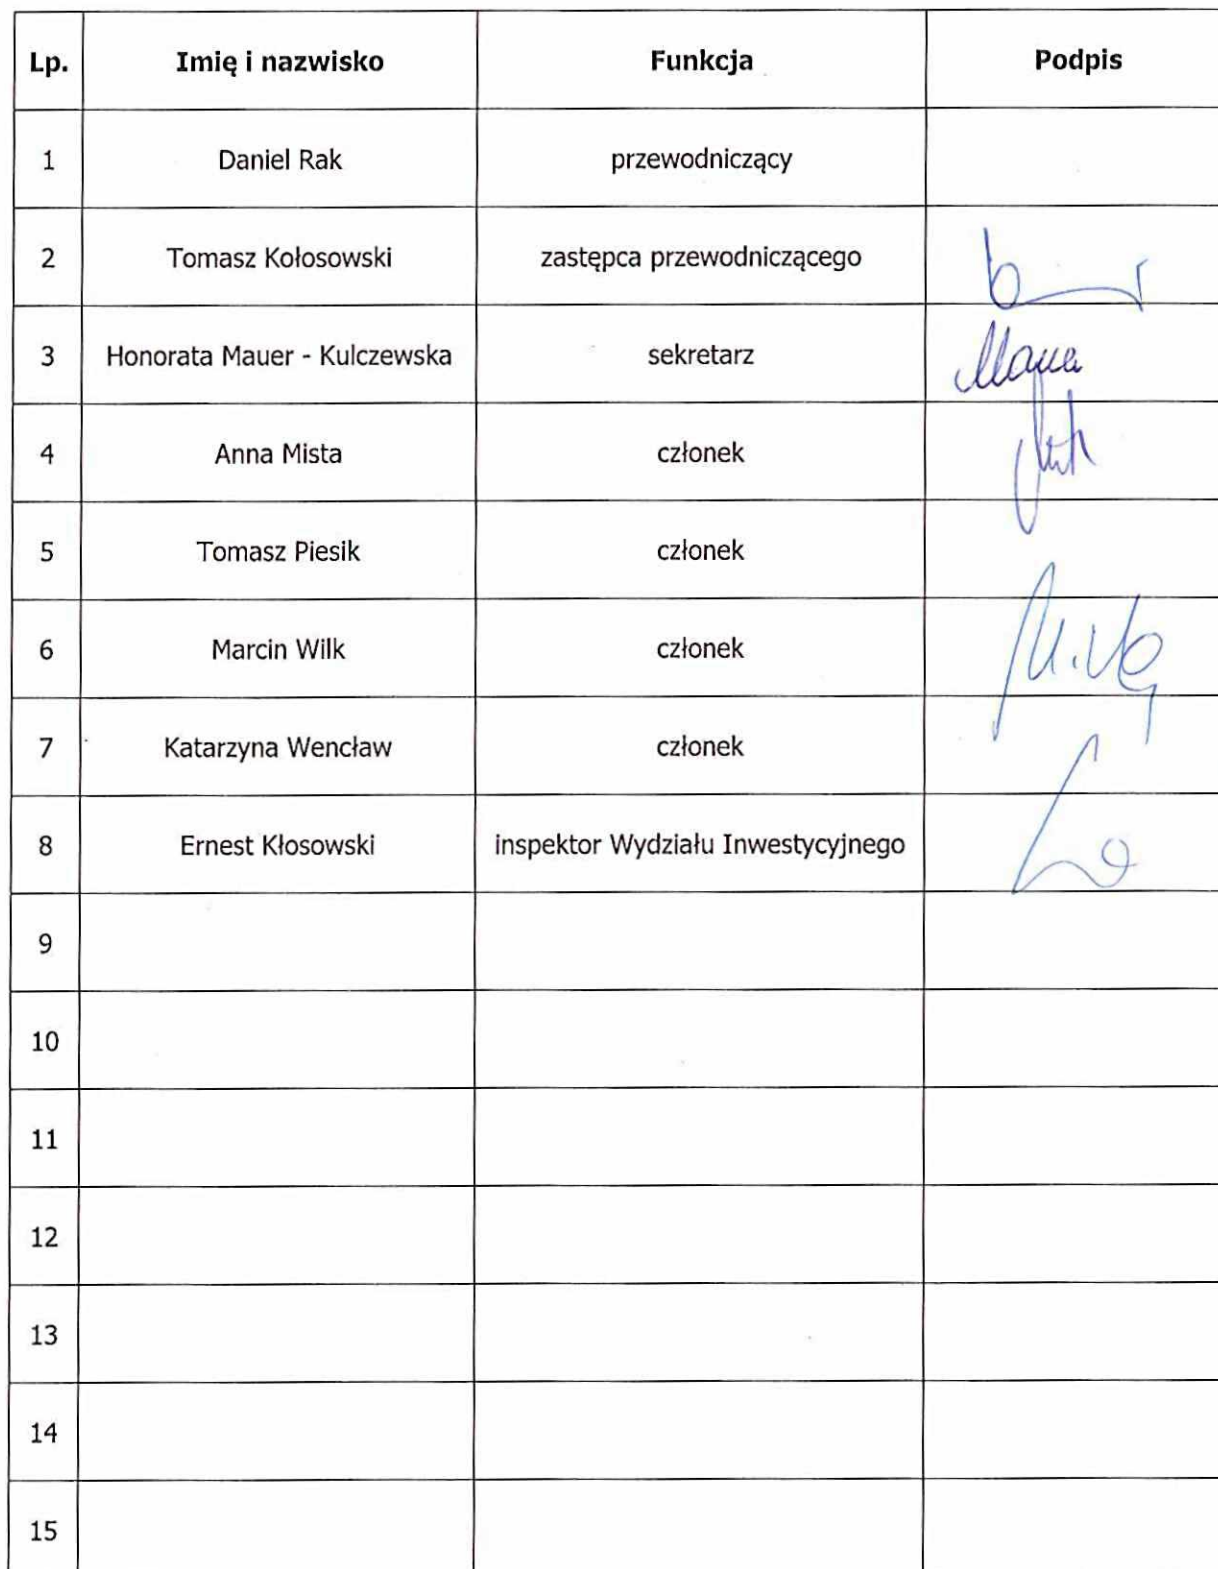 Lp. Imię i nazwisko Funkcja Podpis
1 Daniel Rak przewodniczący
2 Tomasz Kołosowski zastępca przewodniczącego
3 Honorata Mauer - Kulczewska sekretarz
4 Anna Mista członek
5 Tomasz Piesik członek
6 Marcin Wilk członek
7 Katarzyna Wencław członek
8 Ernest Kłosowski inspektor Wydziału Inwestycyjnego
9
10
11
12
13
14
15